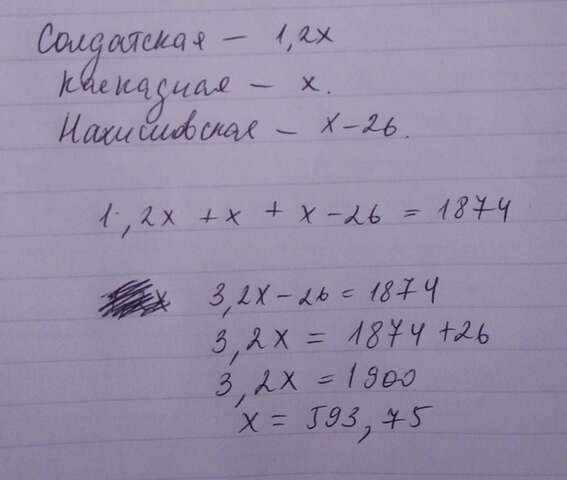 Солдатская – 1,2x
Каскадная – x.
Нахимовская – x – 26.
1,2x + x + x – 26 = 1874
3,2x – 26 = 1874
3,2x = 1874 + 26
3,2x = 1900
x = 593,75